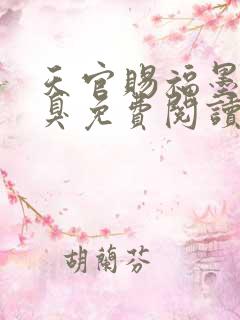 天官賜福墨
臭免費閱讀
胡蘭芬